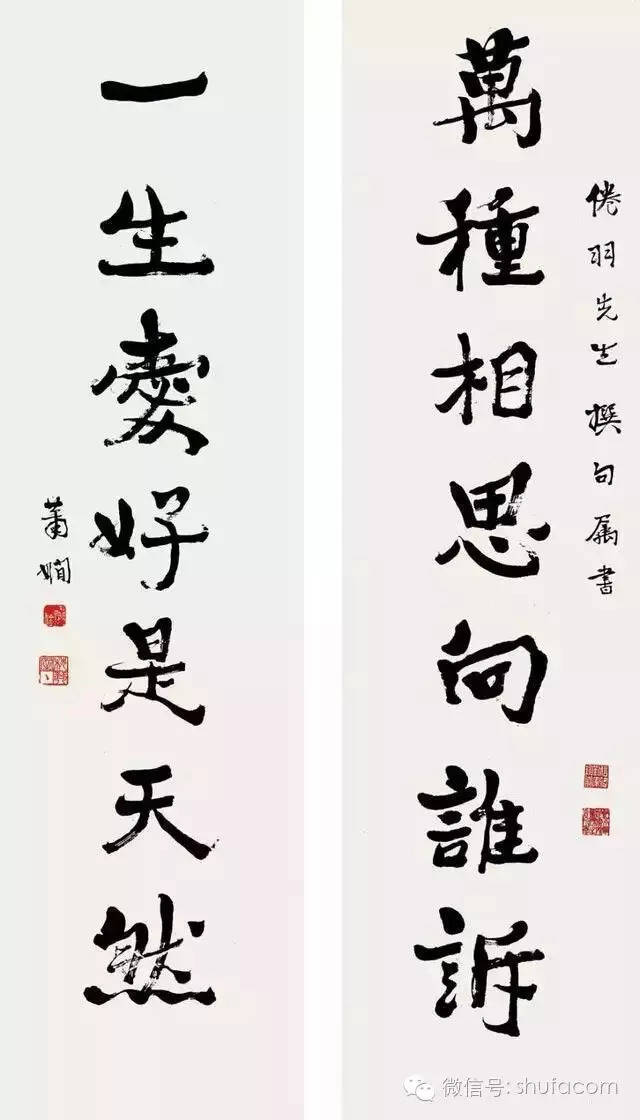 倦羽先生撰句属書
萬種相思向誰訴
一生愛好是天然
蕭嫻
微信号: shufacom